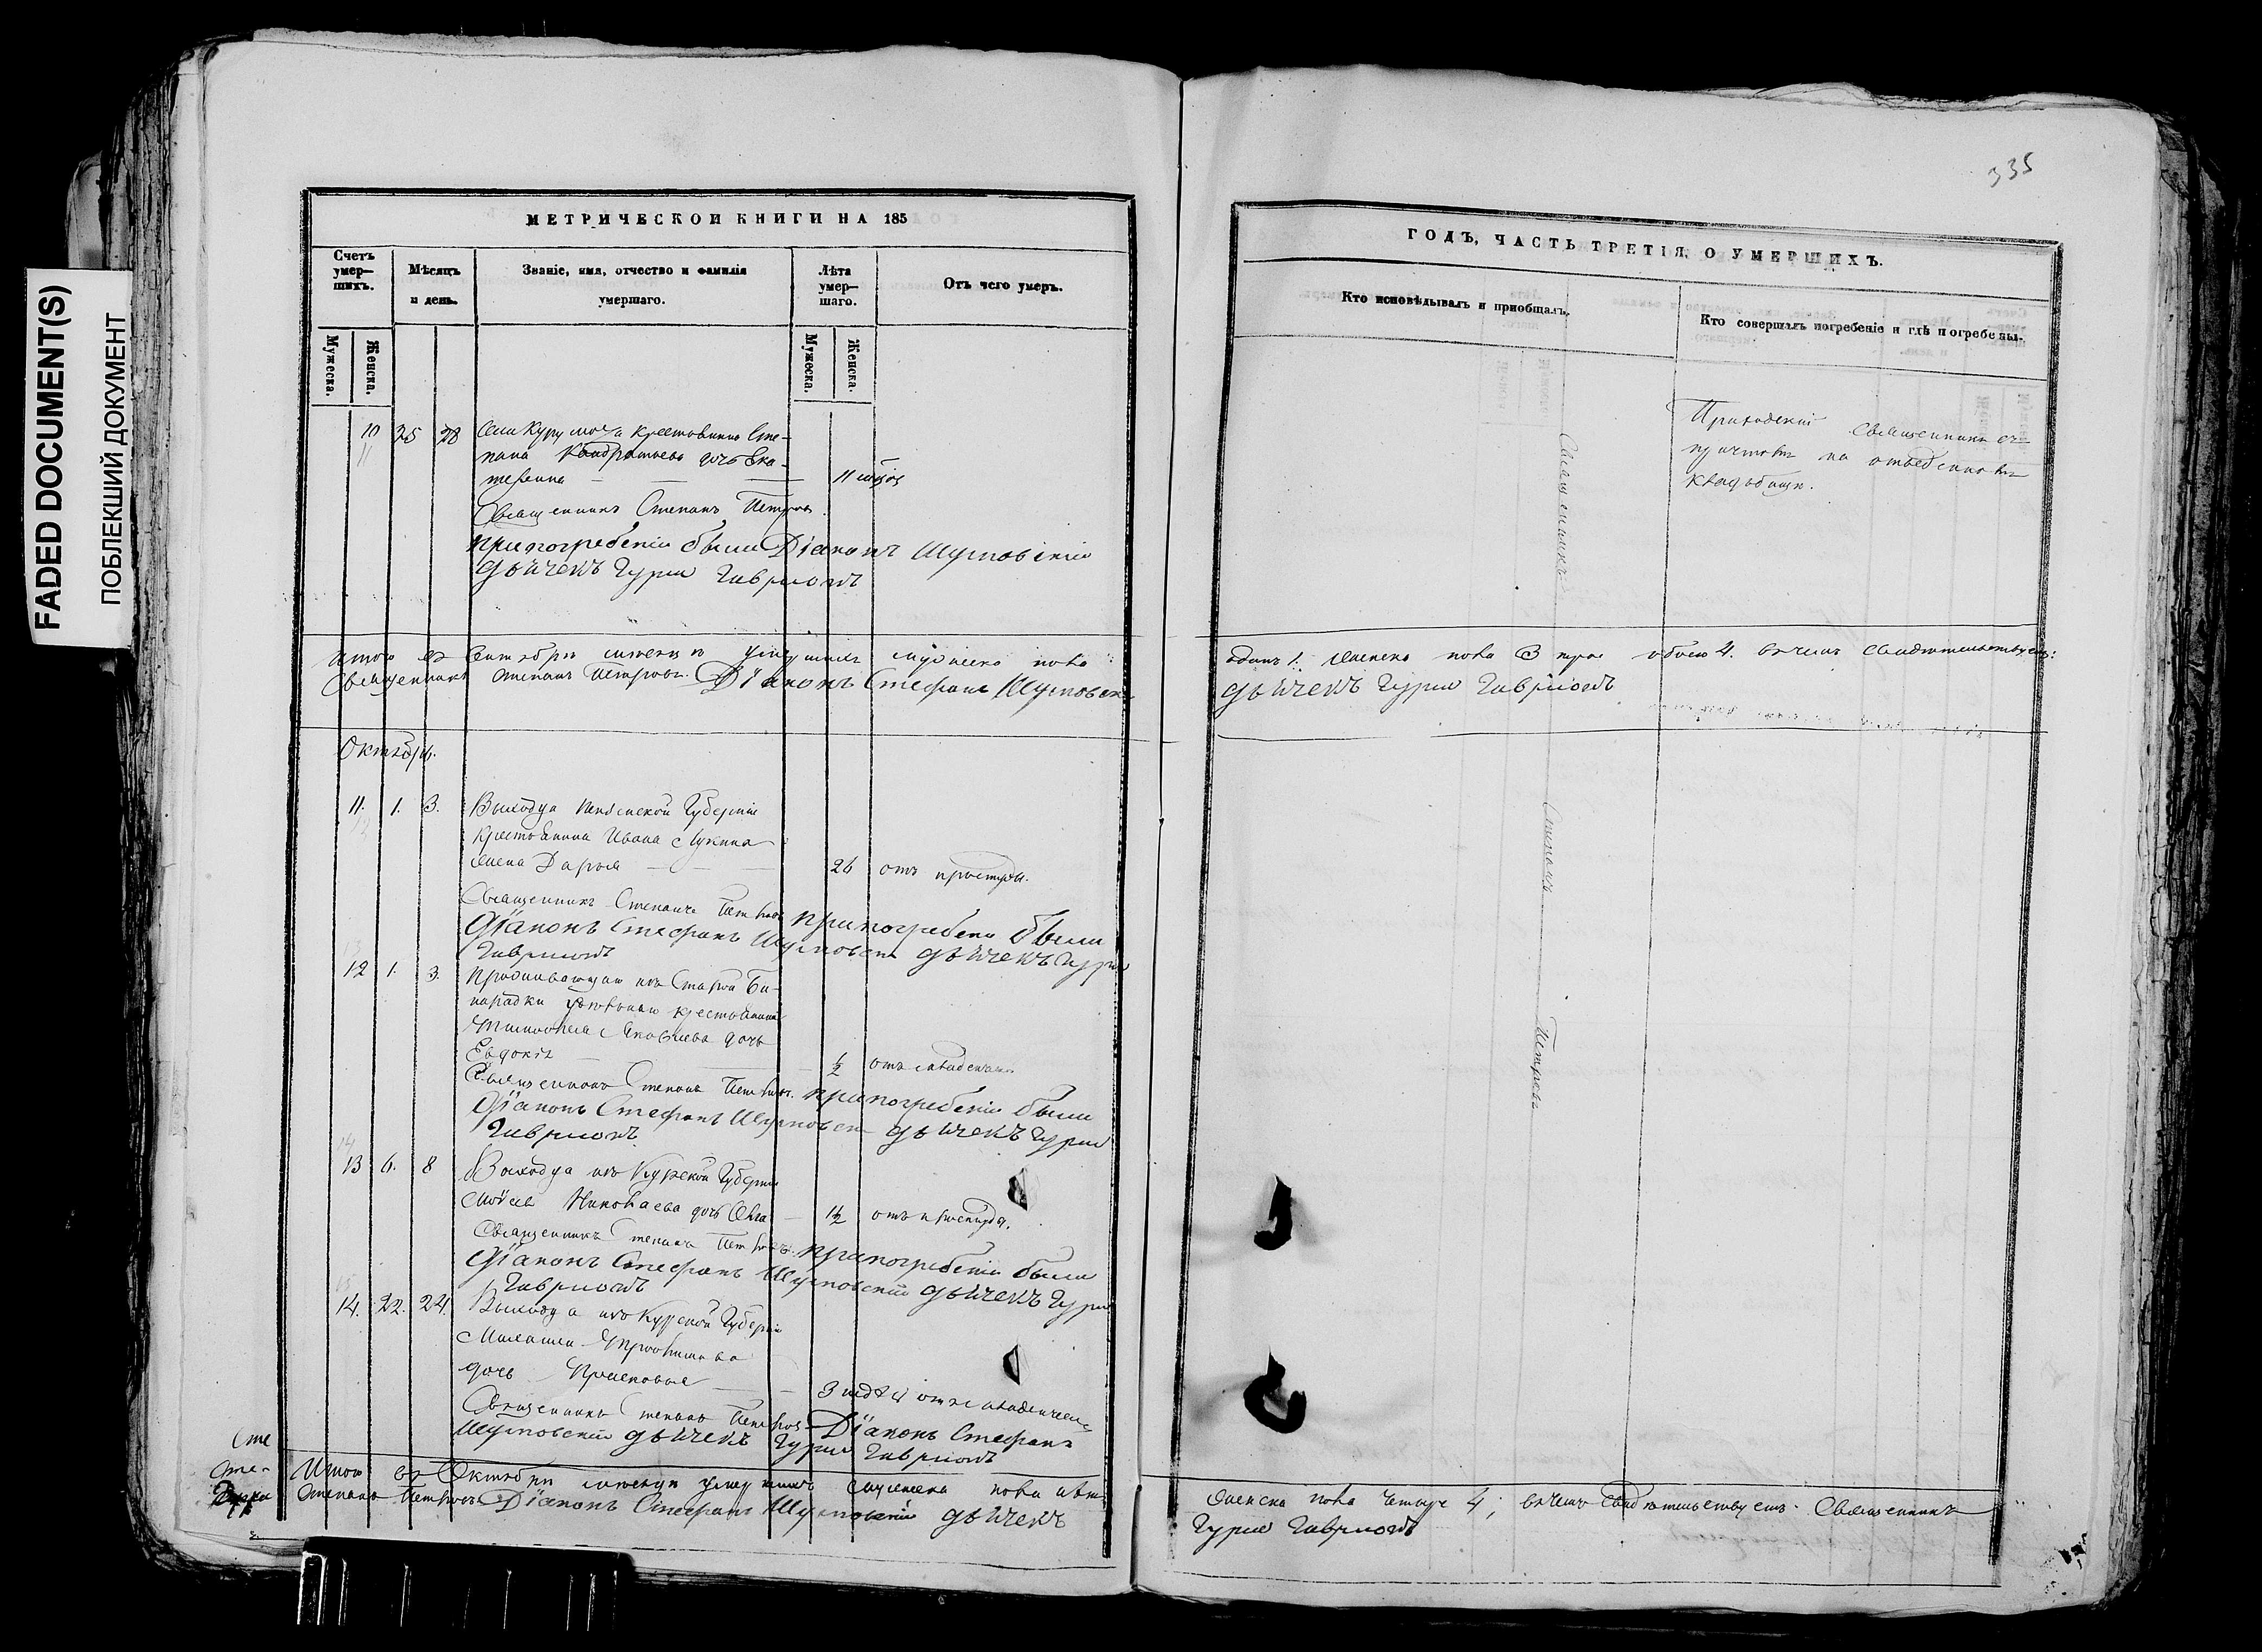 FADED DOCUMENT(S)
ПОБЛЕКШИЙ ДОКУМЕНТ
335
МЕТРИЧЕСКОЙ КНИГИ НА 185
Счетъ умер-шихъ.
Мѣсяцъ и день.
Званіе, имя, отчество и фамилія умершаго.
Лѣта умер-шаго.
Отъ чего умеръ.
Мужеска.
Женска.
Мужеска.
Женска.
10 25 28 крестьянина Сте-
пана Кондратьева дочь Ека-
терина 11
Священникъ Степанъ Петровъ.
при погребеніи были Діаконъ Шумовскій
дьячекъ Гурій Гавриловъ
Итого въ Сентябрѣ мѣсяцѣ умершихъ мужеска пола
Священникъ Степанъ Петровъ. Діаконъ Стефанъ Шумовск
Октябрь.
11. 1. 3. Выходца Пензенской Губерніи
крестьянина Ивана Лукина
жена Дарья 26 отъ простуды.
Священникъ Степанъ Петровъ при погребеніи были
Діаконъ Стефанъ Шумовскій дьячекъ Гурій
Гавриловъ
12 1. 3. Проживающаго изъ Старой Би-
нарадки крестьянина
Яковлева дочь
Евдокія ½ отъ младенч
Священникъ Степанъ Петровъ. при погребеніи были
Діаконъ Стефанъ Шумовск дьячекъ Гурій
Гавриловъ
13 6. 8 Выходца изъ Курской Губерніи
Моѵсея Николаева дочь Ольга 1½ отъ
Священникъ Степанъ Петровъ. при погребеніи были
Діаконъ Стефанъ Шумовскій дьячекъ Гурій
Гавриловъ
14. 22. 24. Выходца изъ Курской Губерніи
Трофимова
дочь 3 нед
Священникъ Степанъ Петровъ Діаконъ Стефанъ
Шумовскій дьячекъ Гурій Гавриловъ
Итого въ Октябрѣ мѣсяцѣ умершихъ мужеска пола
Степанъ Петровъ Діаконъ Стефанъ Шумовскій дьячекъ
ГОДЪ, ЧАСТЬ ТРЕТІЯ, О УМЕРШИХЪ.
Кто исповѣдывалъ и пріобщалъ.
Кто совершалъ погребеніе и гдѣ погребены.
Приходскій священникъ съ
причтомъ на отведенномъ
кладбищѣ.
Священникъ
Степанъ
Петровъ
одинъ 1. женска пола 3 три обоего 4. въ чемъ свидѣтельствуемъ:
дьячекъ Гурій Гавриловъ
женска пола четыре 4; въ чемъ свидѣтельствуемъ. Священникъ
Гурій Гавриловъ